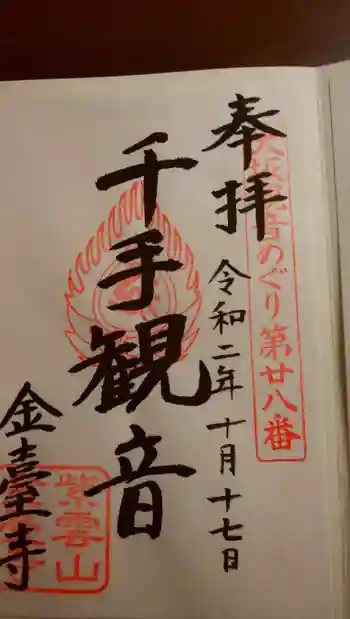 奉拝
大坂観音めぐり第廿八番
令和二年十月十七日
千手観音
金臺寺
紫雲山